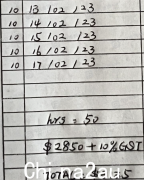 10 13/02/23
10 14/02/23
10 15/02/23
10 16/02/23
10 17/02/23
hrs = 50
$2850 + 10% GST
China2au